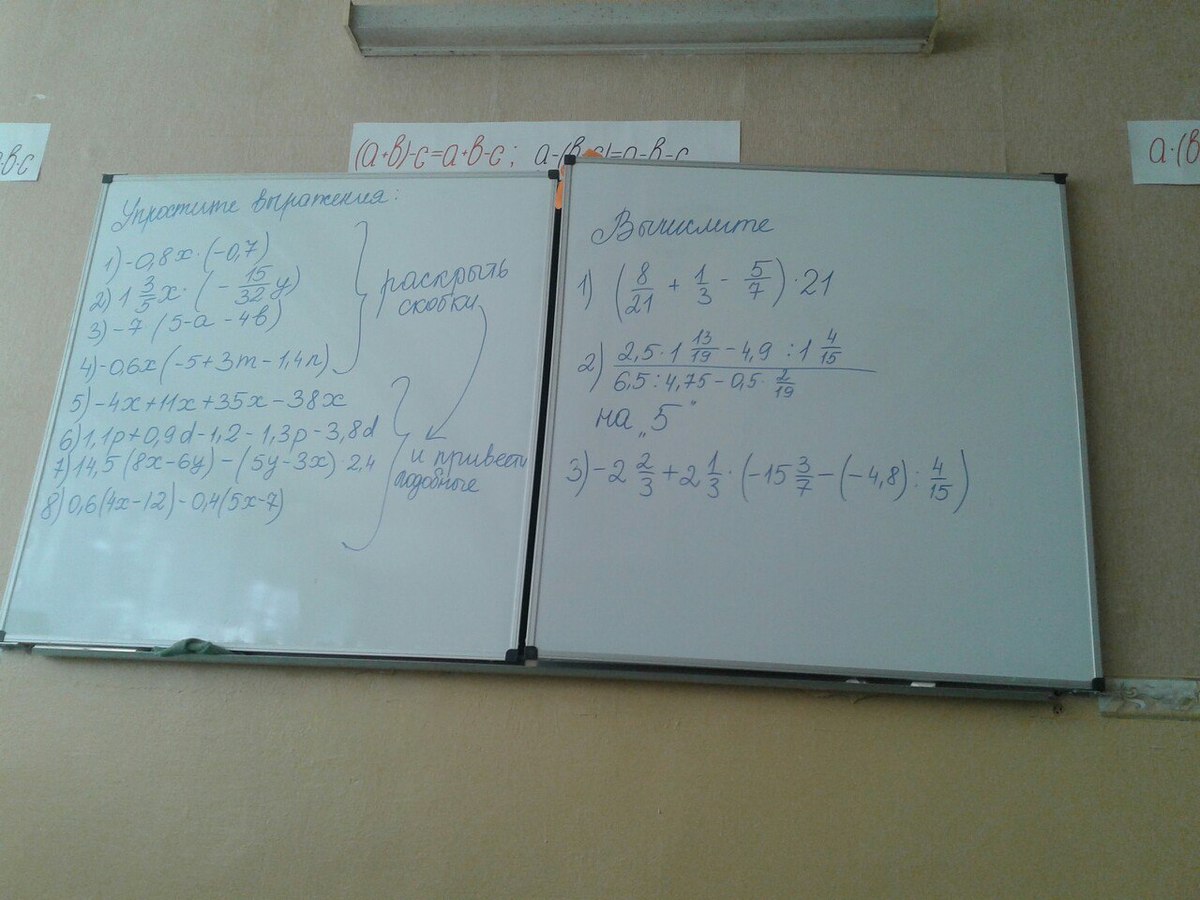 в-с
(а+в)-с=а+в-с; а-(в-с)=а-в-с
а·(в
Упростите выражения:
1) -0,8x·(-0,7)
2) 1 3/5 x · (- 15/32 y)
3) -7 (5-a-4b)
4) -0,6x (-5+3m-1,4n)
раскрыть
скобки
5) -4x+11x+35x-38x
6) 1,1p+0,9d-1,2-1,3p-3,8d
7) 14,5(8x-6y)-(5y-3x)·2,4
8) 0,6(4x-12)-0,4(5x-7)
и привести
подобные
Вычислите
1) (8/21 + 1/3 - 5/7)·21
2) (2,5·1 13/19 - 4,9 : 1 4/15) / (6,5:4,75-0,5· 2/19)
на „5"
3) -2 2/3 + 2 1/3 · (-15 3/7 - (-4,8) : 4/15)